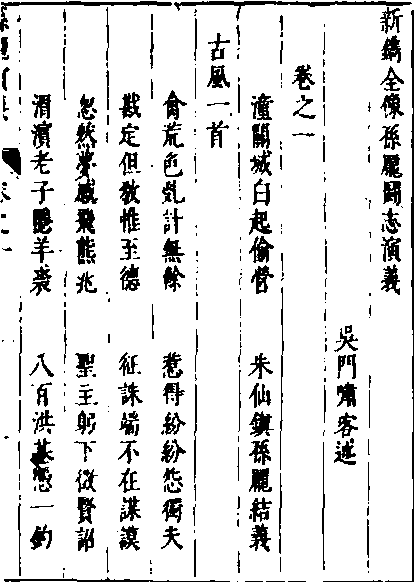 新鐫全像孫龐鬪志演義
吳門嘯客述
卷之一
潼關城白起偷營　朱仙鎮孫龐結義
古風一首
禽荒色亂計無餘　惹得紛紛怨獨夫
戡定但敎惟至德　征誅端不在謀謨
忽然夢感飛熊兆　聖主躬下徵賢詔
渭濱老子羊裘　八百洪基憑一釣
孫龐演義　卷之一